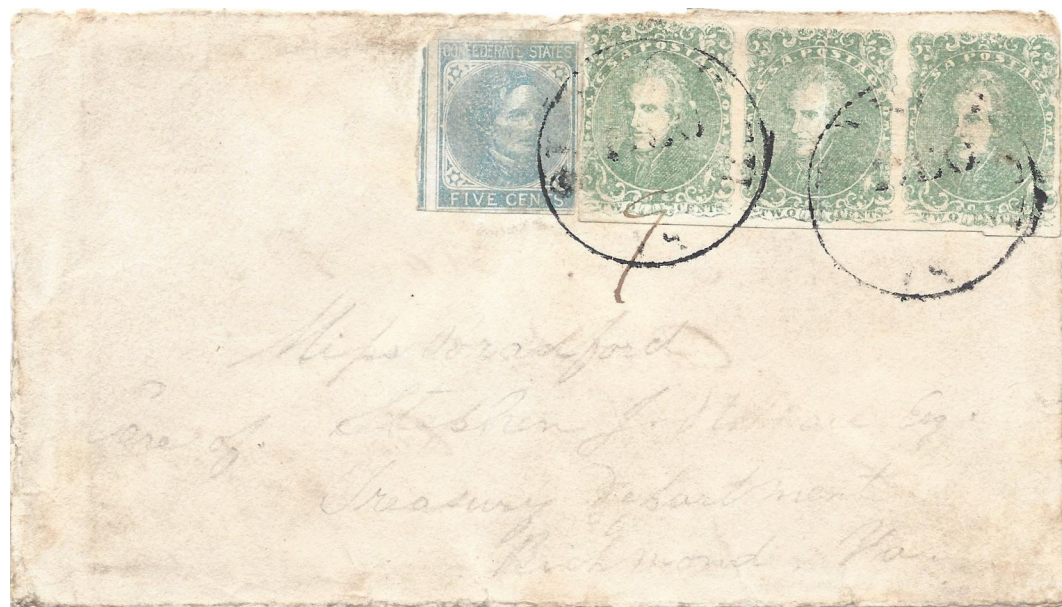 CONFEDERATE STATES
FIVE CENTS
C.S.A POSTAGE
TWO CENTS
S.A POSTAG
TWO CENTS
S A POSTAG
TWO CENTS
PAID
9
Miss Bradford
Care of Stephen J. Esq.
Treasury Department
Richmond Va